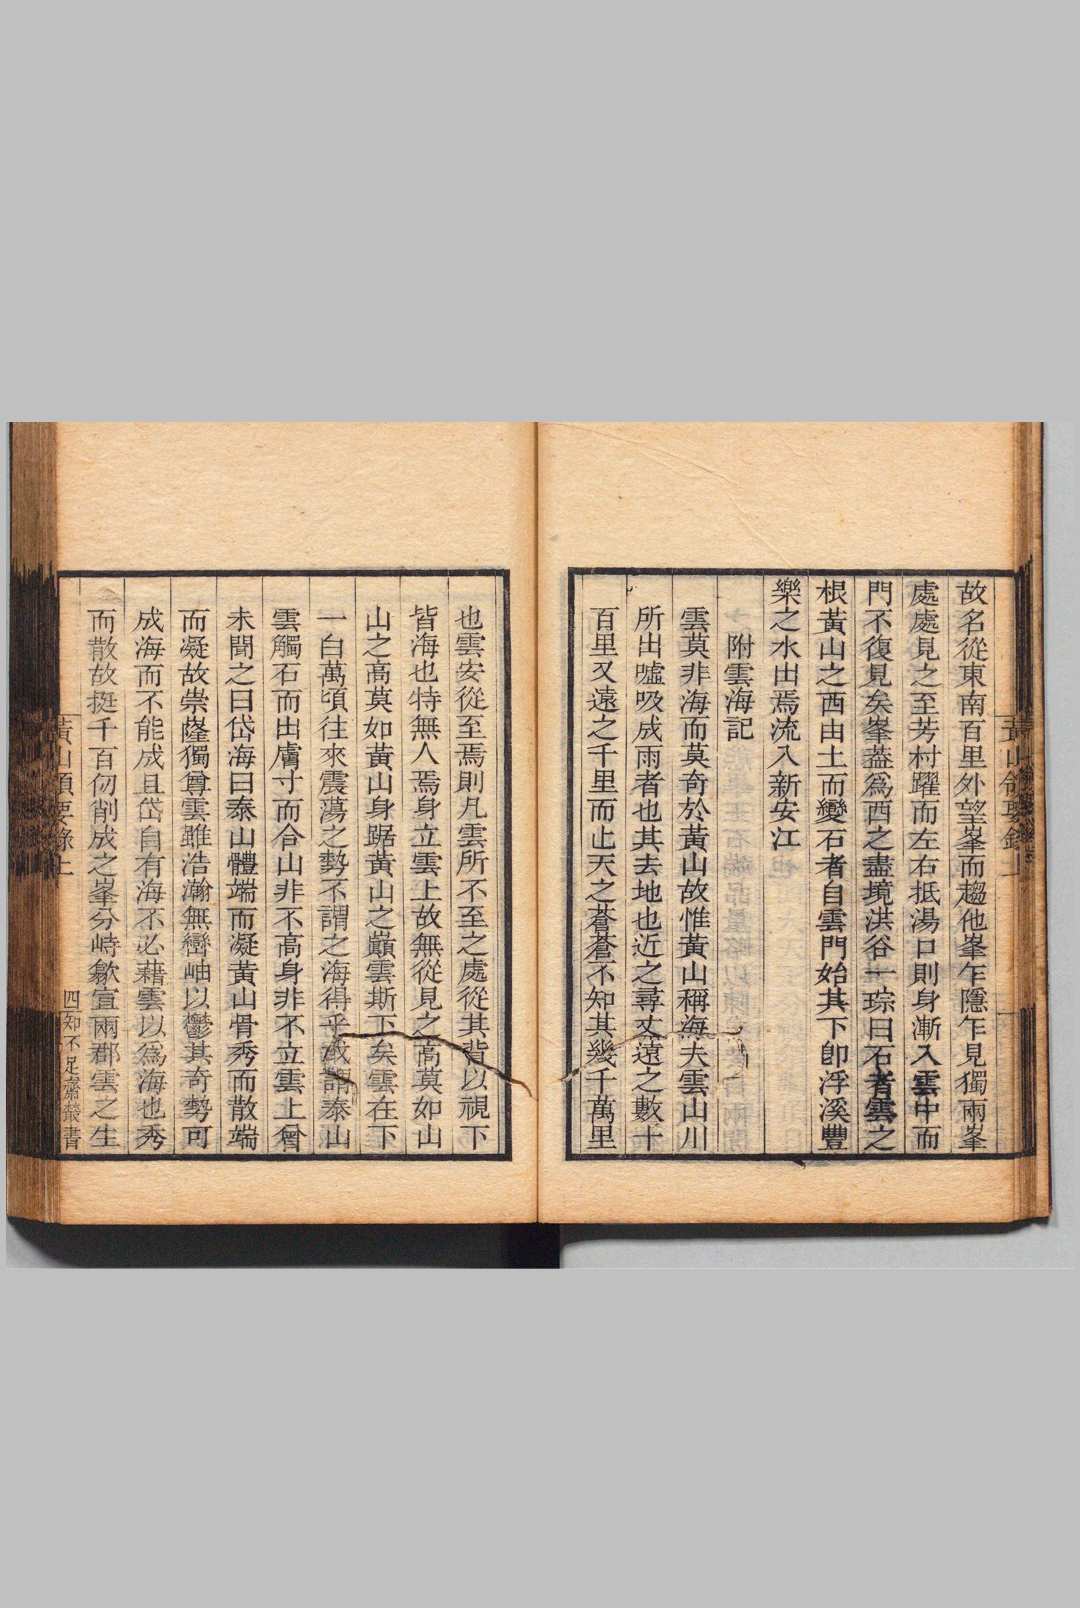 故名從東南百里外望峯而趨他峯乍隱乍見獨兩峯
處處見之至芳村躍而左右抵湯口則身漸入雲中而
門不復見矣峯葢爲西之盡境洪谷一琮曰石者雲之
根黃山之西由土而變石者自雲門始其下卽浮溪豐
樂之水出焉流入新安江
附雲海記
雲莫非海而莫奇於黃山故惟黃山稱海夫雲山川
所出噓吸成雨者也其去地也近之尋丈遠之數十
百里又遠之千里而止天之蒼蒼不知其幾千萬里
也雲安從至焉則凡雲所不至之處從其背以視下
皆海也特無人焉身立雲上故無從見之高莫如山
山之高莫如黃山身踞黃山之巔雲斯下矣雲在下
一白萬頃往來震蕩之勢不謂之海得乎或謂泰山
雲觸石而出膚寸而合山非不高身非不立雲上曾
未聞之曰岱海曰泰山體端而凝黃山骨秀而散端
而凝故崇隆獨尊雲雖浩瀚無巒岫以鬱其奇勢可
成海而不能成且岱自有海不必藉雲以爲海也秀
而散故挺千百仞削成之峯分峙歙宣兩郡雲之生
黃山領要錄上
四
知不足齋叢書